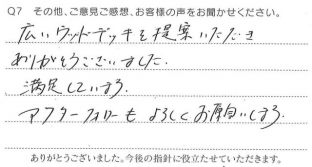 Q7 その他、ご意見ご感想、お客様の声をお聞かせください。
広いウッドデッキを提案いただき
ありがとうございました。
満足しています。
アフターフォローも よろしくお願いします。
ありがとうございました。今後の指針に役立たせていただきます。